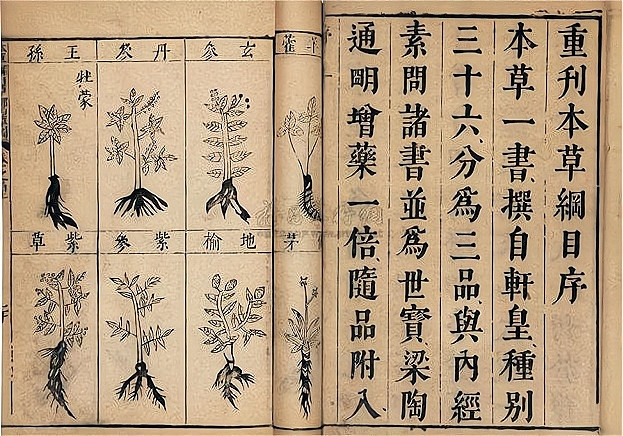 重刊本草綱目序
本草一書撰自軒皇種別
三十六分爲三品與內經
素問諸書並爲世寶梁陶
通明增藥一倍隨品附入
藿
玄參
丹參
王孫
牡蒙
茅
地榆
紫參
紫草